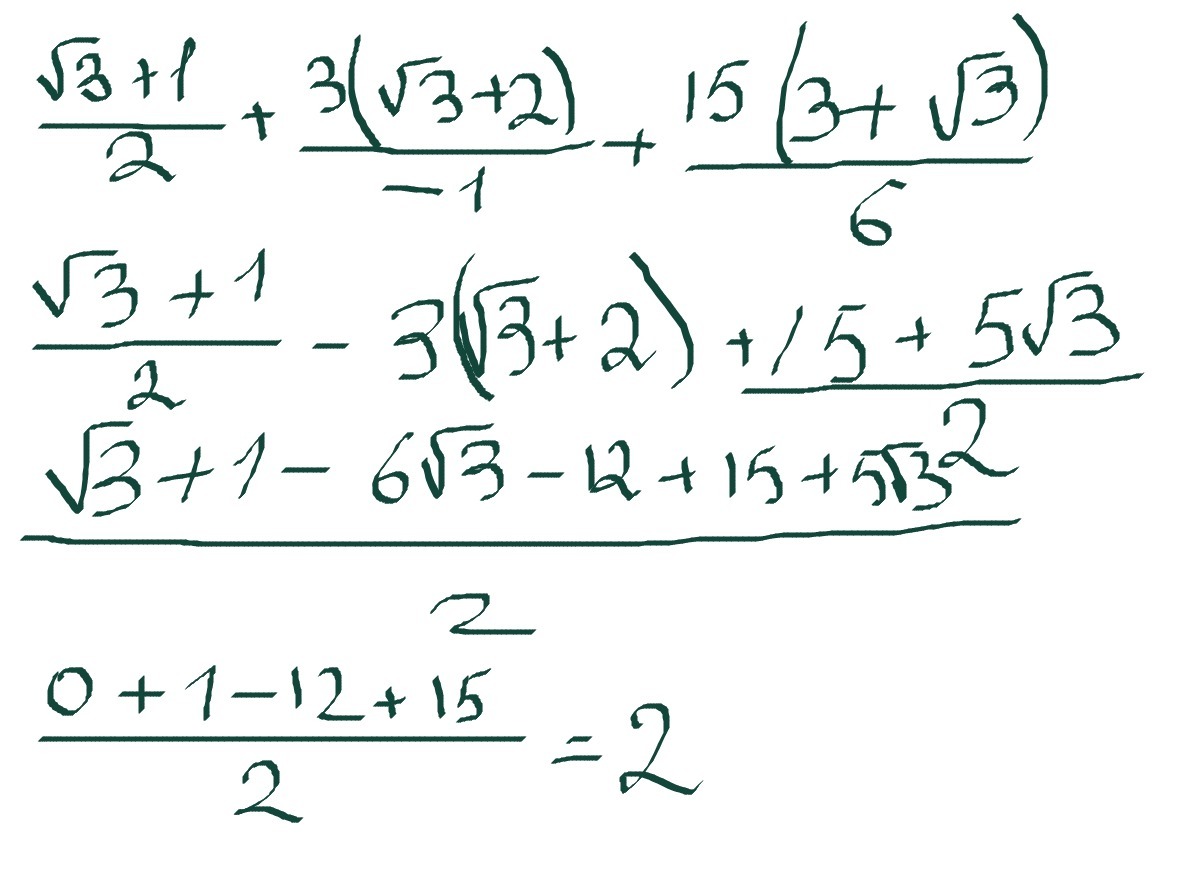 (√3+1)/2 + 3(√3+2)/-1 + 15(3+√3)/6
(√3+1)/2 - 3(√3+2) + (15+5√3)/2
(√3+1-6√3-12+15+5√3)/2
(0+1-12+15)/2 = 2